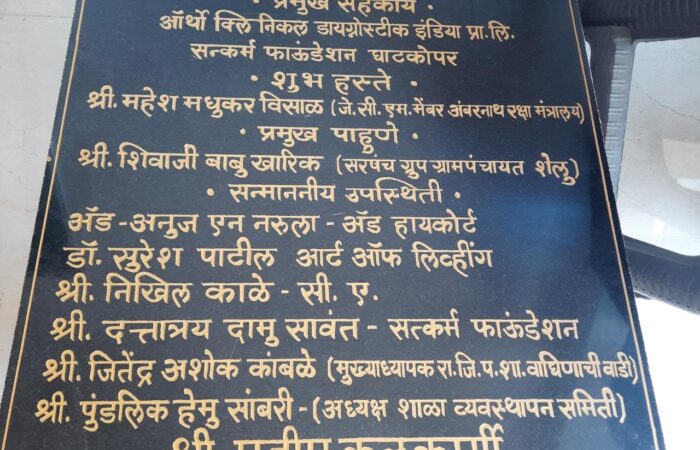 • प्रमुख सहकार्य •
ऑर्थो क्लिनिकल डायग्नोस्टीक इंडिया प्रा.लि.
सत्कर्म फाऊंडेशन घाटकोपर
• शुभ हस्ते •
श्री. महेश मधुकर विसाळ (जे.सी.एम.मेंबर अंबरनाथ रक्षा मंत्रालय)
• प्रमुख पाहुणे •
श्री. शिवाजी बाबु खारिक (सरपंच ग्रुप ग्रामपंचायत शेलु)
• सन्माननीय उपस्थिती •
ॲड - अनुज एन नरुला - ॲड हायकोर्ट
डॉ. सुरेश पाटील आर्ट ऑफ लिव्हींग
श्री. निखिल काळे - सी. ए.
श्री. दत्तात्रय दामु सावंत - सत्कर्म फाऊंडेशन
श्री. जितेंद्र अशोक कांबळे (मुख्याध्यापक रा.जि.प.शा.वाघिणाची वाडी)
श्री. पुंडलिक हेमु सांबरी - (अध्यक्ष शाळा व्यवस्थापन समिती)
श्री